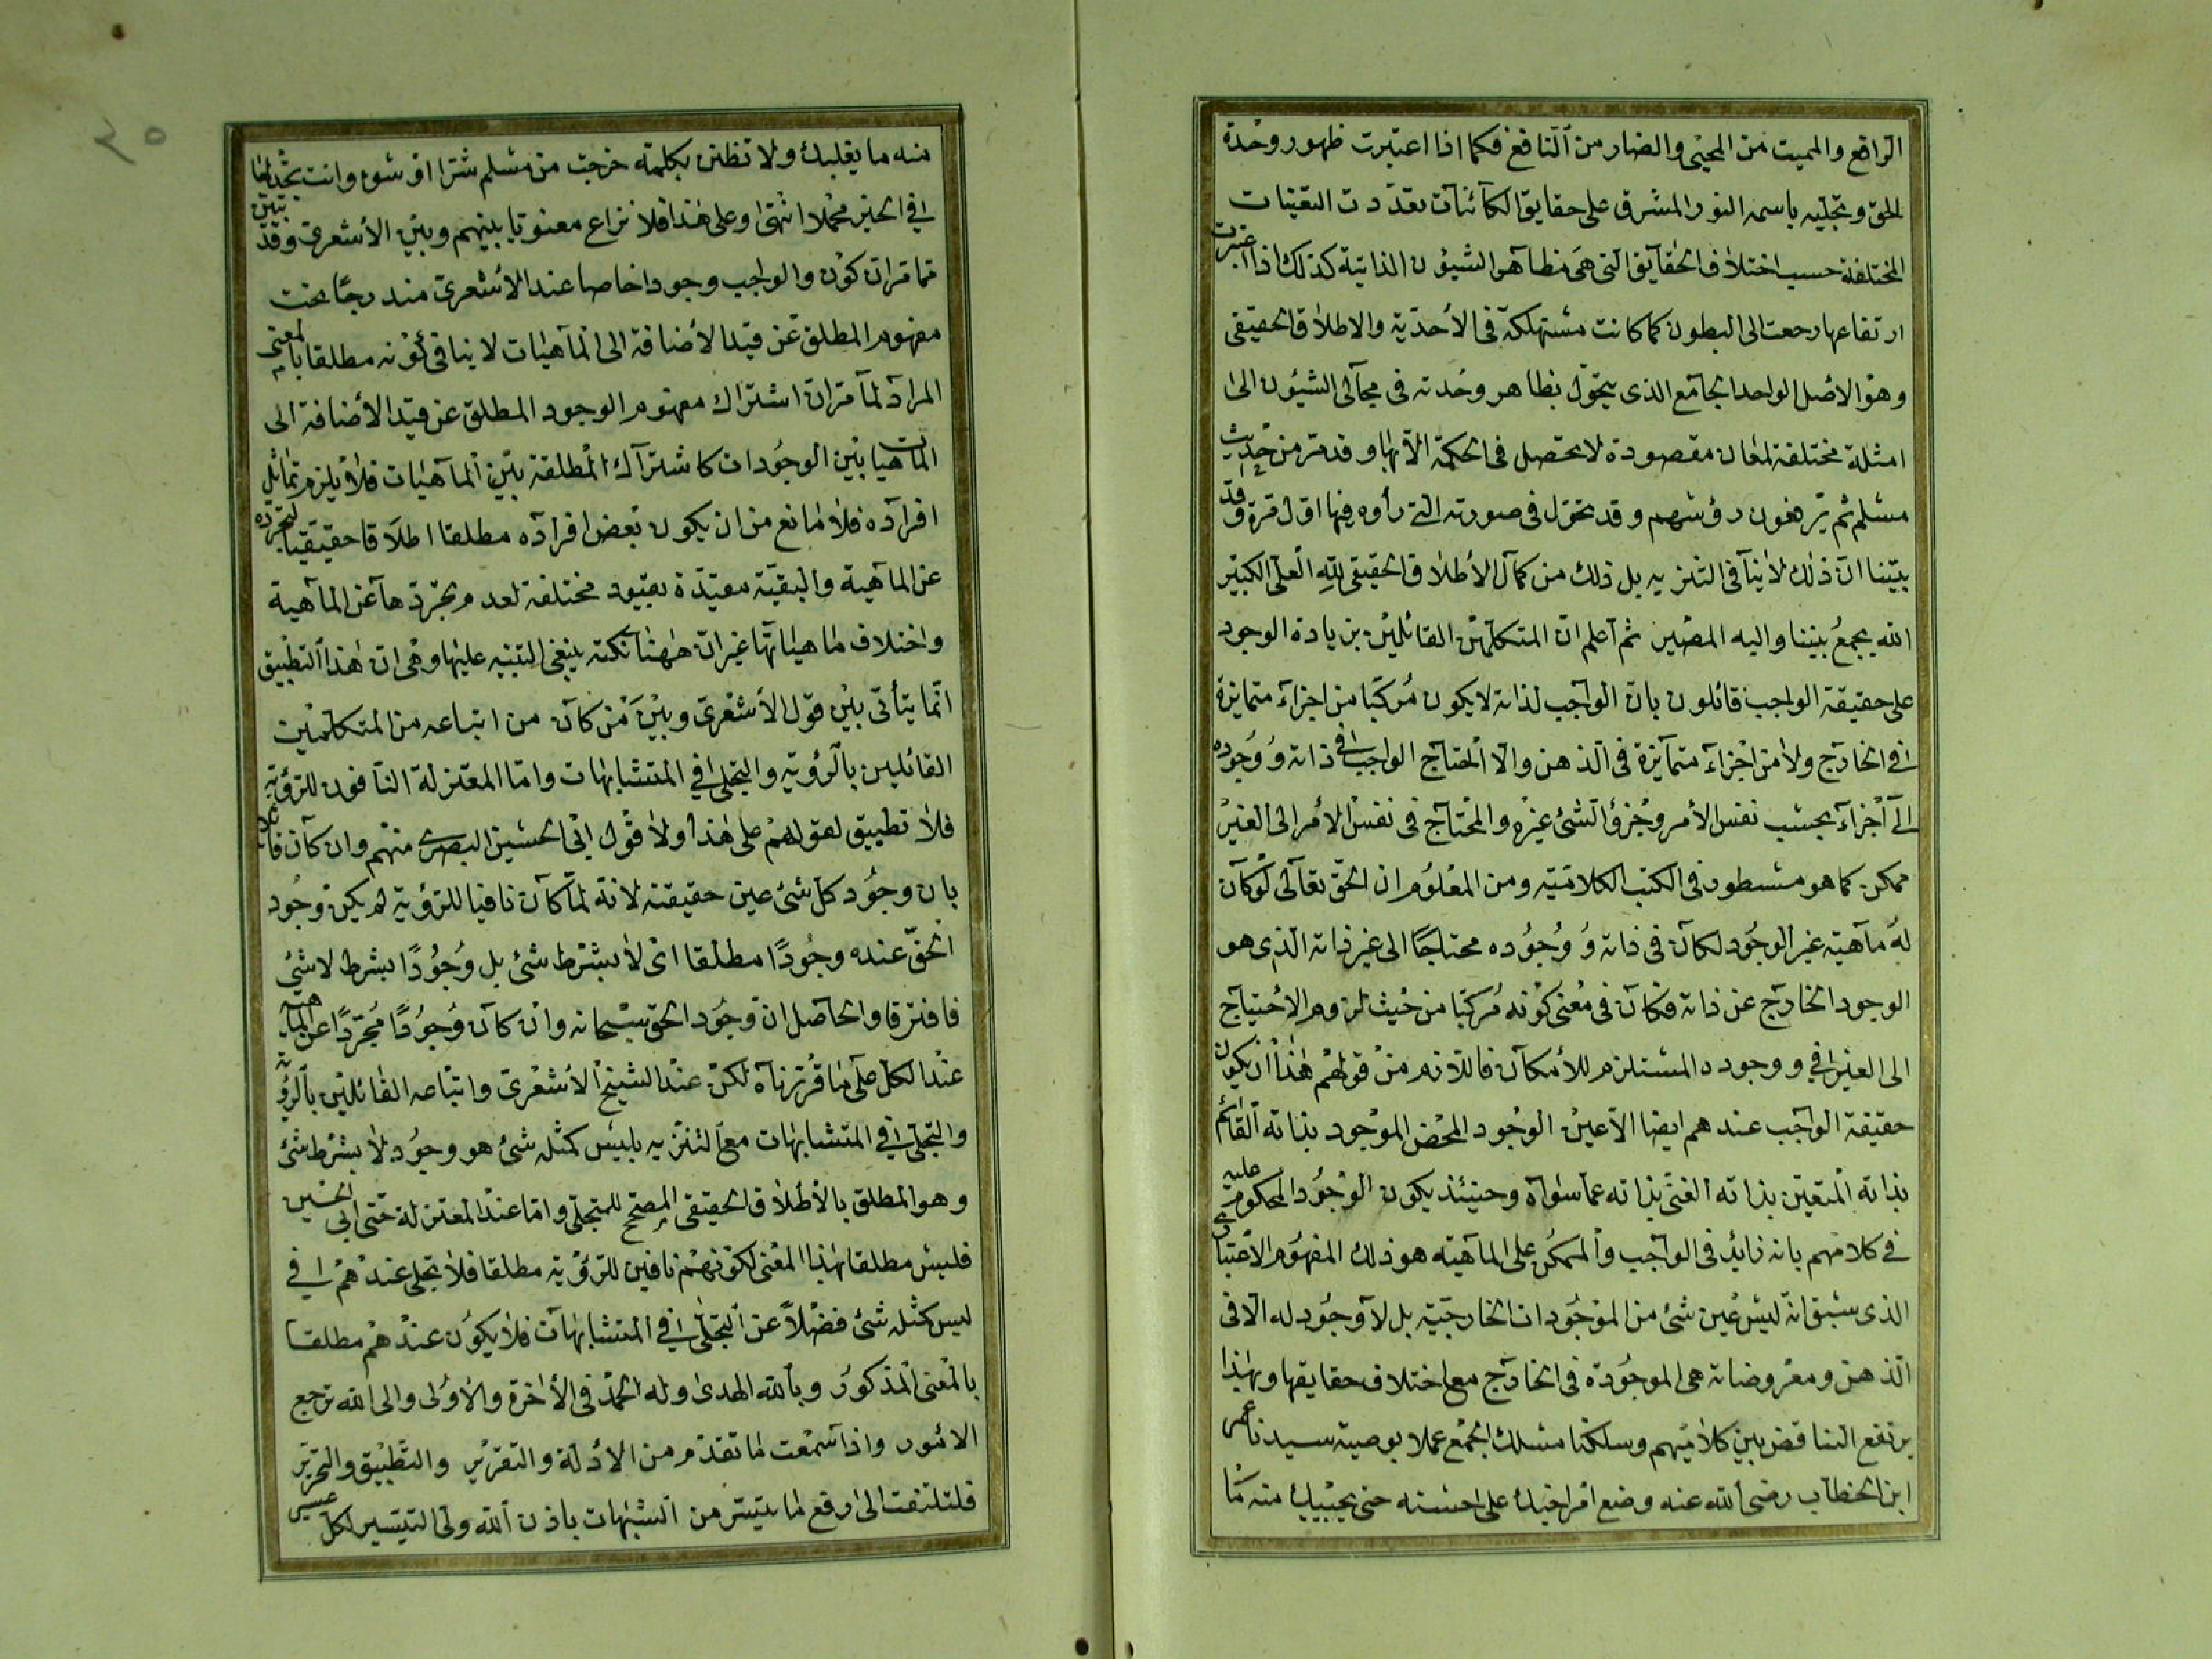 الرافع والمميت من المحيى والضار من النافع فكما اذا اعتبرت ظهور وحدة
الحق وتجليه باسمه النور المشرق على حقايق الكائنات تعددت التعينات
المختلفة حسب اختلاف الحقايق التى هى مظاهر الشيؤن الذاتية كذلك اذا اعتبرت
ارتفاعها رجعت الى البطون كما كانت مستهلكة فى الأحدية والاطلاق الحقيقى
وهو الاصل الواحد الجامع الذى يتحول بظاهر وحدته فى مجالى الشيؤن الى
امثلة مختلفة لمعان مقصودة لا يحصل فى الحكمة الا بها وقد مر من حديث
مسلم ثم يرفعون رؤسهم وقد تحول فى صورته التى رأوه فيها اول مرة وقد
بينا ان ذلك لا ينافى التنزيه بل ذلك من كمال الأطلاق الحقيقى لله العلى الكبير
الله يجمع بيننا واليه المصير ثم اعلم ان المتكلمين القائلين بزيادة الوجود
على حقيقة الواجب قائلون بان الواجب لذاته لا يكون مركبا من اجزاء متمايزة
فى الخارج ولا من اجزاء متمايزة فى الذهن والا لاحتاج الواجب فى ذاته ووجوده
الى اجزاء بحسب نفس الأمر وجزؤ الشئ غيره والمحتاج فى نفس الأمر الى الغير
ممكن كما هو مسطور فى الكتب الكلامية ومن المعلوم ان الحق تعالى لو كان
له ماهية غير الوجود لكان فى ذاته ووجوده محتاجا الى غير ذاته الذى هو
الوجود الخارج عن ذاته فكان فى معنى كونه مركبا من حيث لزوم الاحتياج
الى الغير فى ووجوده المستلزم للأمكان فاللازم من قولهم هذا ان يكون
حقيقة الواجب عندهم ايضا الا عين الوجود المحض الموجود بذاته القائم
بذاته المتعين بذاته الغنى بذاته عما سواه وحينئذ يكون الوجود المحكوم عليه
فى كلامهم بانه زايد فى الواجب والممكن على الماهية هو ذلك المفهوم الاعتبارى
الذى سبق انه ليس عين شئ من الموجودات الخارجية بل لا وجود له الا فى
الذهن ومعروضاته هى الموجودة فى الخارج مع اختلاف حقايقها وبهذا
يرتفع التناقض بين كلاميهم وسلكنا مسلك الجمع عملا بوصية سيدنا عمر
ابن الخطاب رضى الله عنه وضع امر اخيك على احسنه حتى يجيبك منه ما
منه ما يغلبك ولا تظنن بكلمة خرجت من مسلم شرا او سوء وانت تجد لها
فى الخير محملا انتهى وعلى هذا فلا نزاع معنويا بينهم وبين الأشعرى وقد تبين
مما مر ان كون والواجب وجودا خاصا عند الأشعرى مندرجا تحت
مفهوم المطلق عن قيد الأضافة الى الماهيات لا ينافى كونه مطلقا بالمعنى
المراد لما مر ان اشتراك مفهوم الوجود المطلق عن قيد الأضافة الى
الماهيات بين الوجودات كاشتراك المطلقة بين الماهيات فلا يلزم تماثل
افراده فلا مانع من ان يكون بعض افراده مطلقا اطلاقا حقيقيا لتجرده
عن الماهية والبقية مقيدة بقيود مختلفة لعدم تجردها عن الماهية
واختلاف ماهياتها غير ان ههنا نكتة ينبغى التنبيه عليها وهى ان هذا التطبيق
انما يتأتى بين قول الأشعرى وبين من كان من اتباعه من المتكلمين
القائلين بالرؤية والتجلى فى المتشابهات واما المعتزلة النافون للرؤية
فلا تطبيق لقولهم على هذا ولا قول ابى الحسين البصرى منهم وان كان قائلا
بان وجود كل شئ عين حقيقته لانه لما كان نافيا للرؤية لم يكن وجود
الحق عنده وجودا مطلقا اى لا بشرط شئ بل وجودا بشرط لا شئ
فافترقا والحاصل ان وجود الحق سبحانه وان كان وجودا مجردا عن الماهية
عند الكل على ما قررناه لكن عند الشيخ الأشعرى واتباعه القائلين بالرؤية
والتجلى فى المتشابهات مع التنزيه بليس كمثله شئ هو وجود لا بشرط شئ
وهو المطلق بالأطلاق الحقيقى المصحح للتجلى واما عند المعتزلة حتى ابى الحسين
فليس مطلقا بهذا المعنى لكونهم نافين للرؤية مطلقا فلا تجلى عندهم فى
ليس كمثله شئ فضلا عن التجلى فى المتشابهات فلا يكون عندهم مطلقا
بالمعنى المذكور وبالله الهدى وله الحمد فى الأخرة والأولى والى الله ترجع
الامور واذا سمعت ما تقدم من الأدلة والتقرير والتطبيق والتحرير
فلتلتفت الى رفع ما يتيسر من الشبهات باذن الله ولى التيسير لكل عسير
٣٥